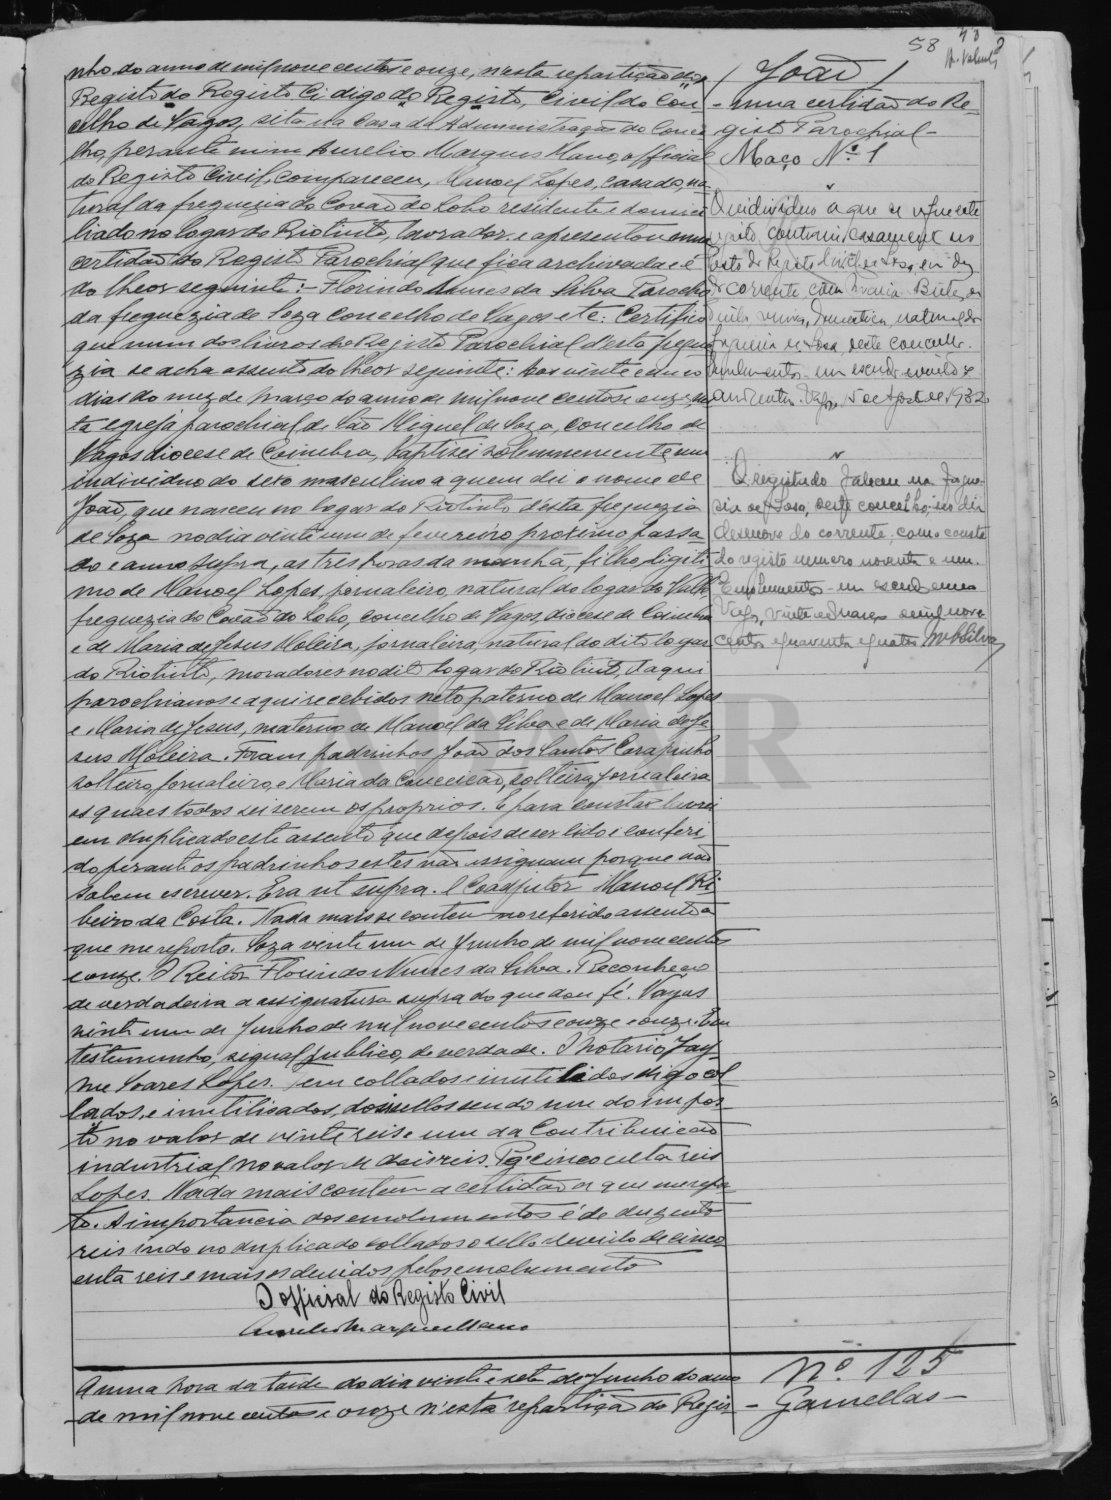 58
nho do anno de mil nove centos e onze, n'esta repartição do
Registo do Registo Ci digo do Registo, Civil do Con-
celho de Vagos, sita na Casa da Administração do Conce
lho, perante mim Aurelio Marques Mano, official
do Registo Civil, compareceu, Manoel Lopes, casado, na
tural da freguezia do Covão do Lobo residente e domici
liado no logar do Riotinto, lavrador, e apresentou uma
certidão do Registo Parochial que fica archivada e é
do theor seguinte: - Florindo Nunes da Silva Parocho
da freguezia de Soza Concelho de Vagos etc: Certifico
que num dos livros do Registo Parochial d'esta fregue
zia se acha assento do theor seguinte: Aos vinte e cinco
dias do mez de Março do anno de mil nove centos e onze, nes
ta egreja parochial de São Miguel de Soza, concelho de
Vagos diocese de Coimbra, baptizei solemnemente um
individuo do sexo masculino a quem dei o nome de
João, que nasceu no logar do Riotinto d'esta freguezia
de Soza no dia vinte um de fevereiro proximo passa-
do e anno supra, as tres horas da manhã, filho, ligiti
mo de Manoel Lopes, jornaleiro, natural do logar do
freguezia do Covão do Lobo, concelho de Vagos, diocese de Coimbra
e de Maria de Jesus Moleira, jornaleira, natural do dito logar
do Riotinto, moradores no dito logar do Riotinto, d'aqui
parochianos e aqui recebidos neto paterno de Manoel Lopes
e Maria de Jesus, materno de Manoel da Silva e de Maria de Je
sus Moleira. Foram padrinhos João dos Santos Carapinho
solteiro, jornaleiro, e Maria da Conceição, solteira, jornaleira
os quaes todos sei serem os proprios. E para constar lavrei
em duplicado este assento que depois de ser lido e conferi
do perante os padrinhos estes não assignam porque não
sabem escrever. Era ut supra. O Coadjutor Manoel Ri
beiro da Costa. Nada mais se contem no referido assento a
que me reporto. Soza vinte um de Junho de mil nove centos
e onze. O Reitor Florindo Nunes da Silva. Reconheço
de verdadeira a assignatura supra do que dou fé. Vagos
vinte um de Junho de mil nove centos e onze e onze. Em
testemunho, signal publico, de verdade. O notario, Jay-
me Soares Lopes. em collados e inutilidos digo col
lados, e inutilisados, dois sellos sendo um do impos-
to no valor de vinte reis e um da Contribuição
industrial no valor de dois reis. Pg. cincoenta reis
Lopes. Nada mais contem a certidão a que me repor
to. A importancia dos emolumentos é de duzentos
reis indo no duplicado collados o sello devido de cinco
enta reis e mais os devidos pelos emolumentos
O official do Registo Civil
Aurelio Marques Mano
A uma hora da tarde do dia vinte e sete de Junho do anno
de mil nove centos e onze n'esta repartição do Regis-
João
- uma certidão do Re-
gisto Parochial -
Maço Nº 1
O individuo a que se refere este
registo, contraiu casamento no
Posto do Registo Civil de Soza, em dez
do corrente, com Maria
viuva, domestica, natural da
freguezia de Soza, deste concelho.
Emolumentos um escudo
Vagos, 15 de 1932
O registado faleceu na fregue-
sia de Soza, deste concelho, no dia
dezenove do corrente, como consta
do registo numero noventa e um.
Emolumentos - um escudo
Vagos, vinte e de mil nove
centos e quarenta e quatro MSilva
Nº 125
- Gamellas -